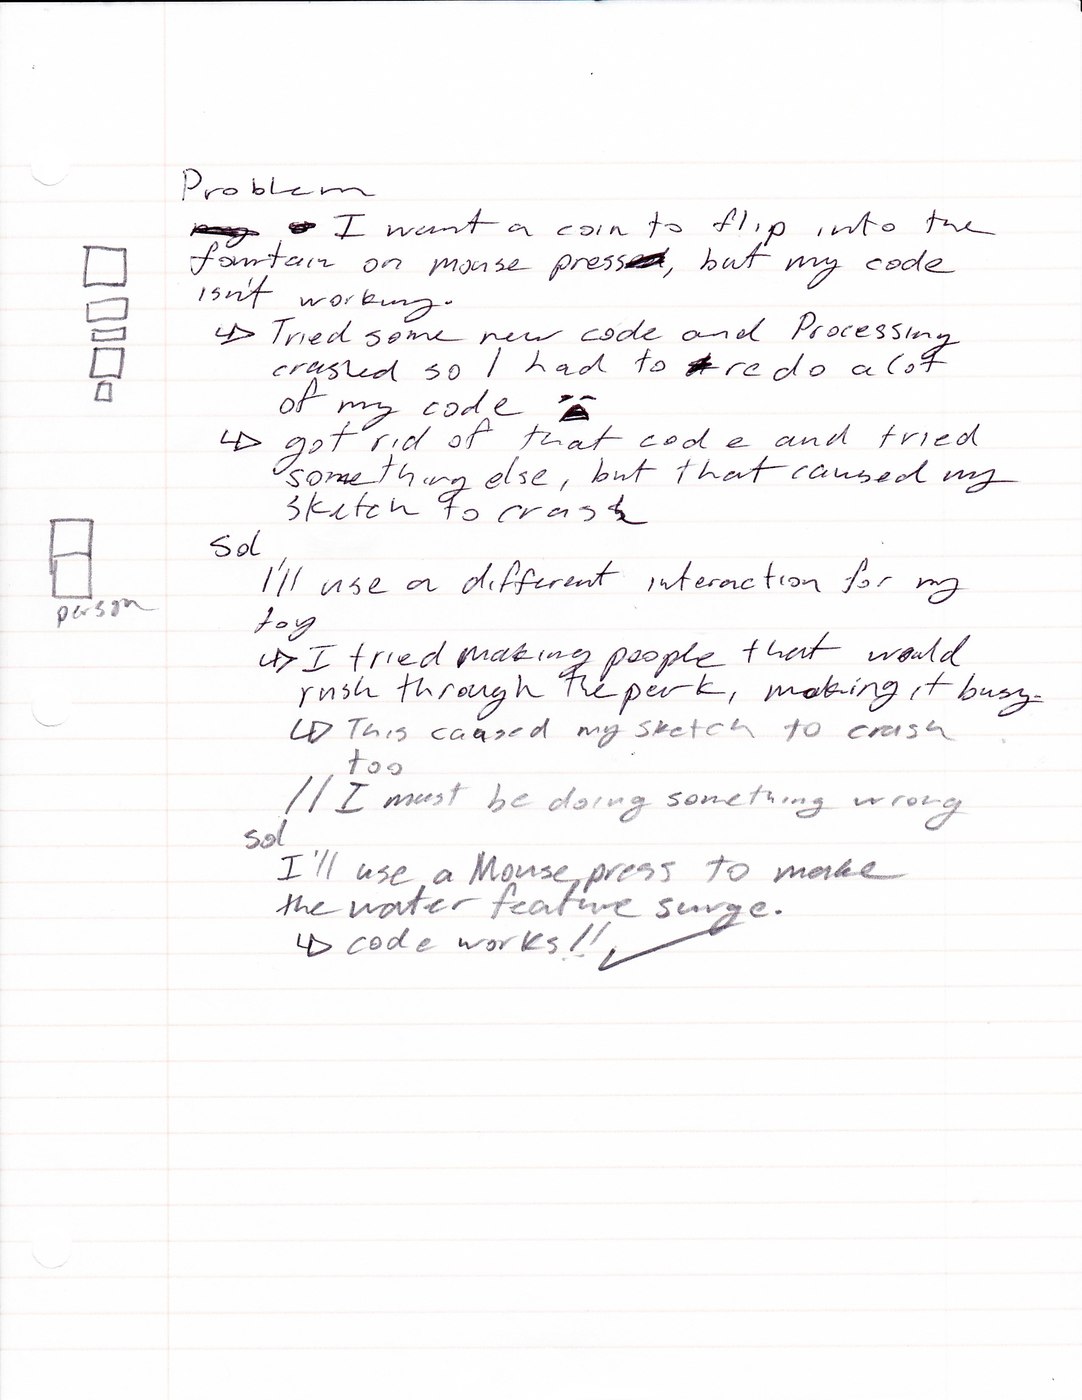 Problem
I want a coin to flip into the
fountain on mouse press, but my code
isn't working.
↳ Tried some new code and Processing
crashed so I had to redo a lot
of my code
↳ got rid of that code and tried
something else, but that caused my
sketch to crash
sol
I'll use a different interaction for my
toy
↳ I tried making people that would
rush through the park, making it busy.
↳ This caused my sketch to crash
too
// I must be doing something wrong
sol
I'll use a Mouse press to make
the water feature surge.
↳ code works!!
person